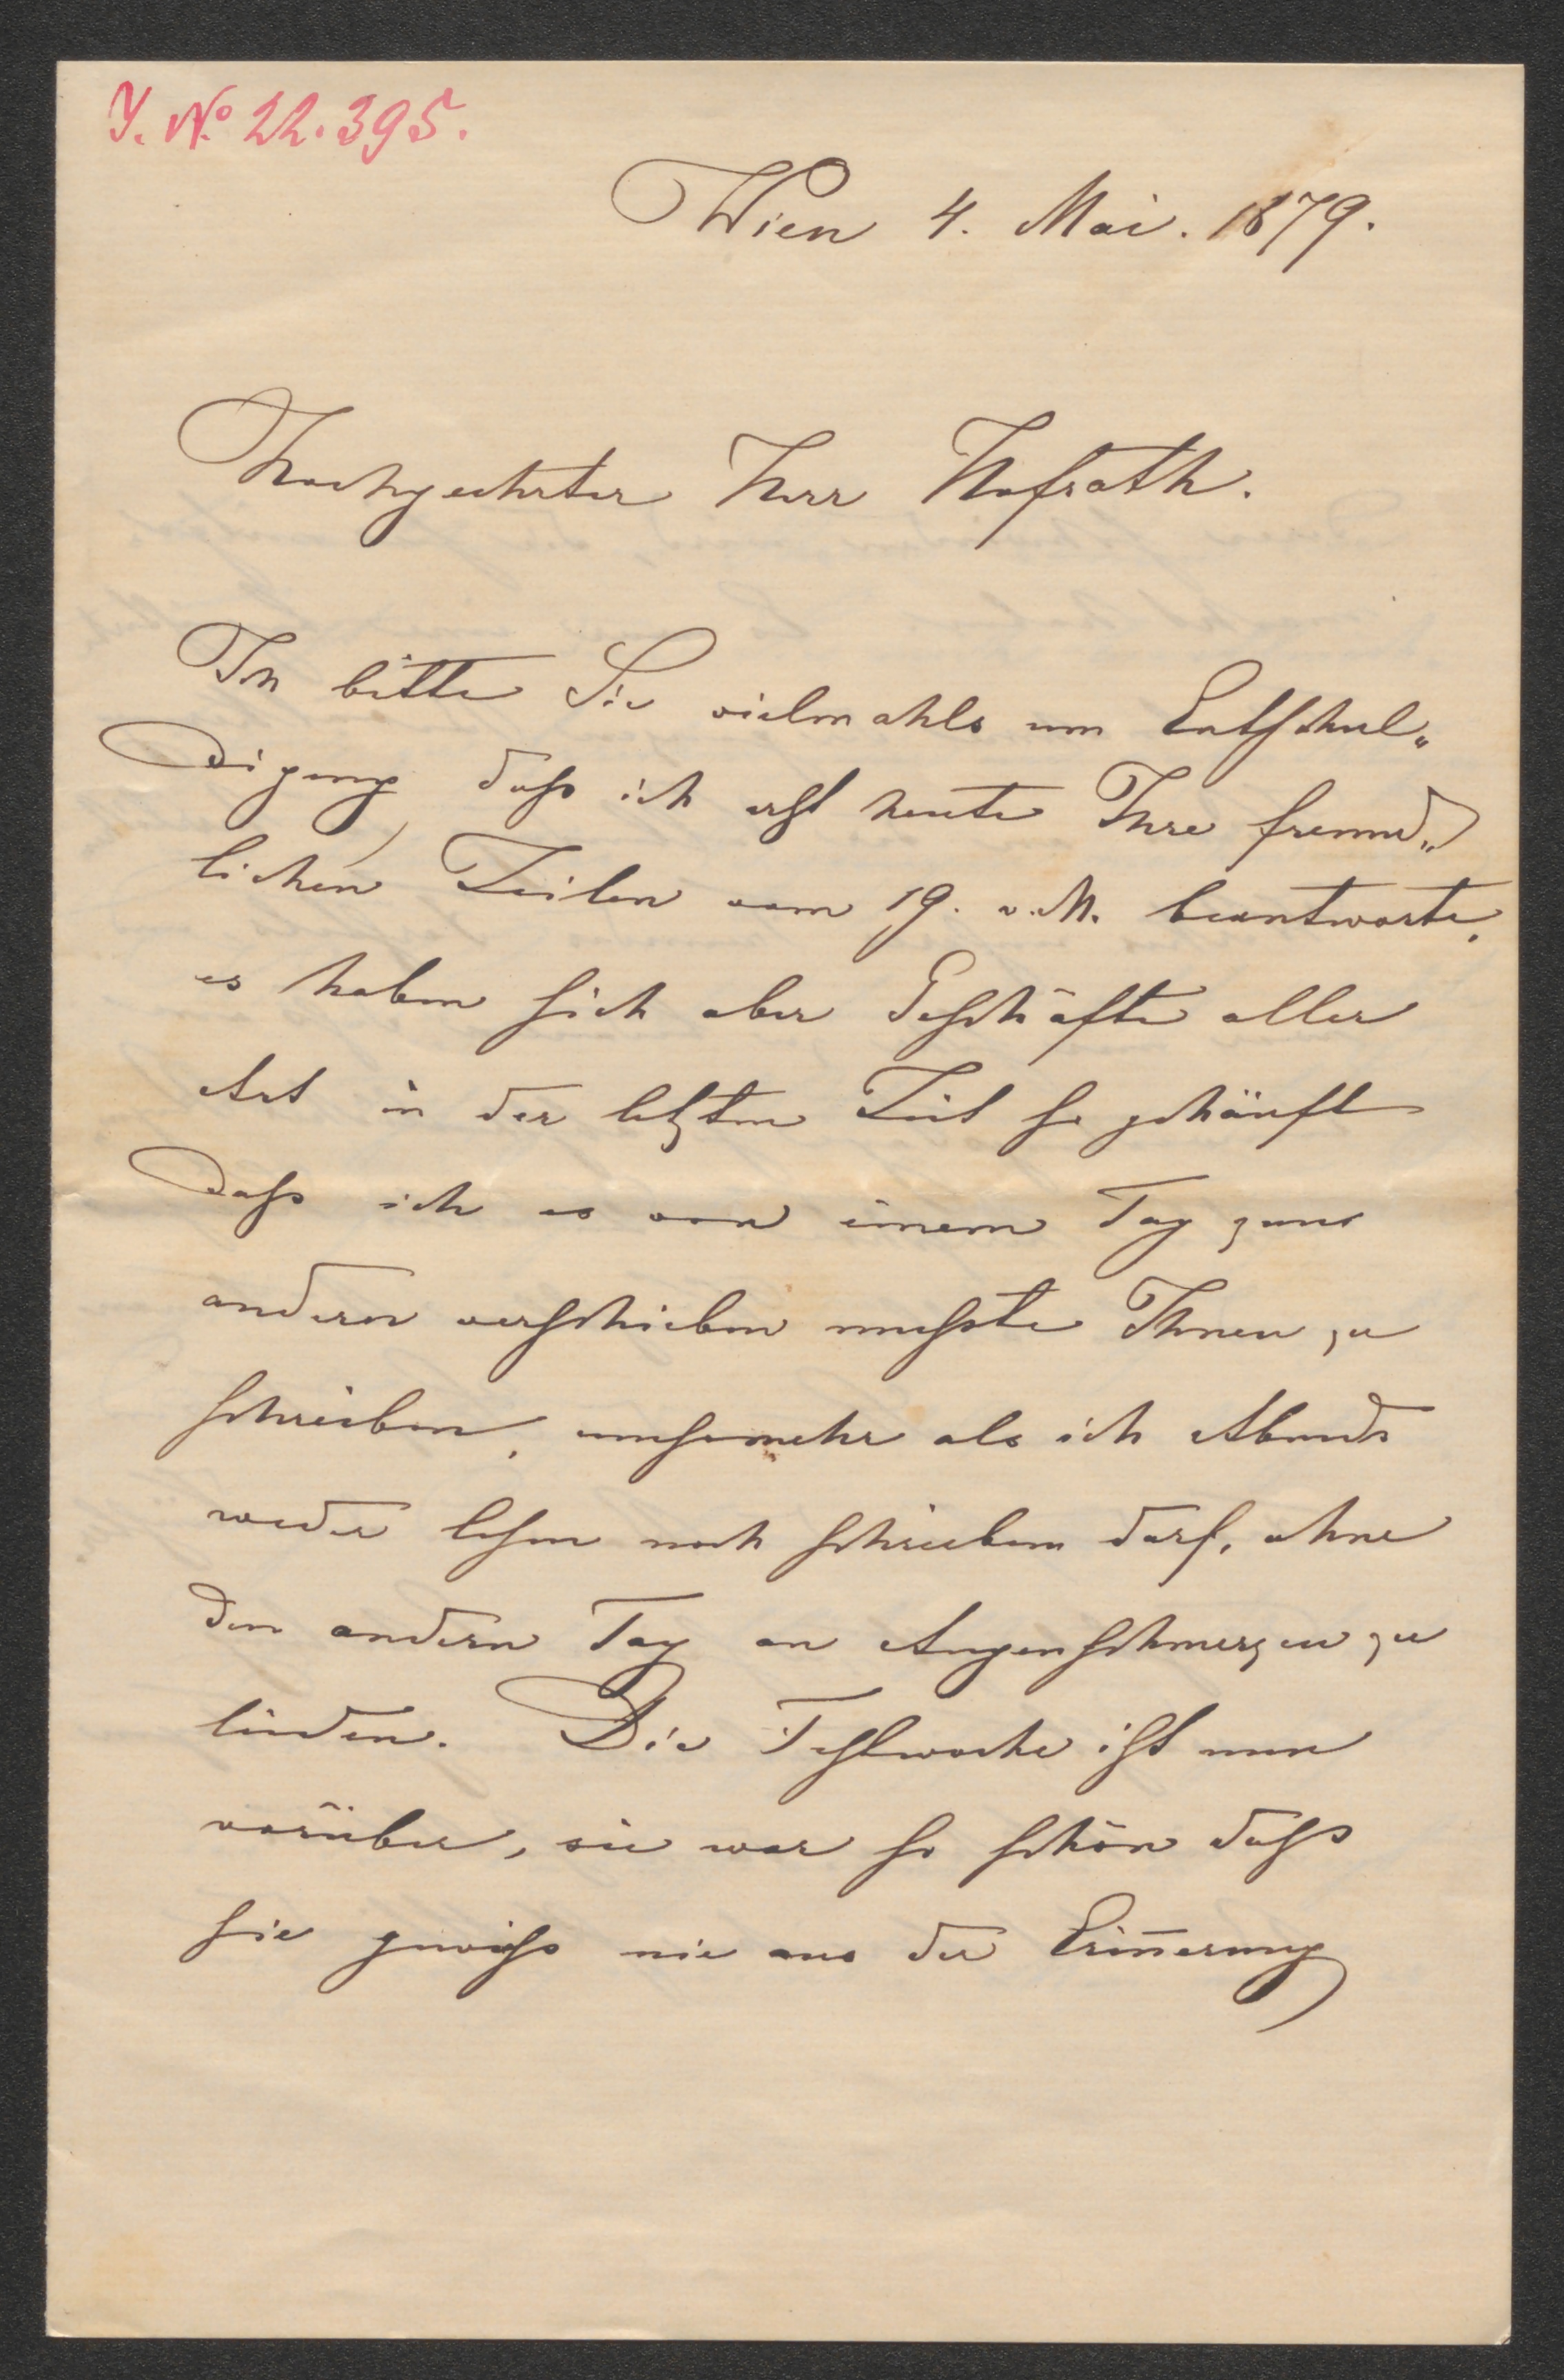 J. No 22.395.
Wien 4. Mai. 1879.
Hochgeehrter Herr Hofrath.
Ich bitte Sie vielmahls um Entschul„
digung, dass ich erst heute Ihre freund„
lichen Zeilen vom 19. v. M. beantworte,
es haben sich aber Geschäfte aller
Art in der letzten Zeit so gehäuft
dass ich es von einem Tag zum
andern verschieben musste Ihnen zu
schreiben, umsomehr als ich Abends
weder lesen noch schreiben darf, ohne
den andern Tag an Augenschmerzen zu
leiden. Die Festwoche ist nun
vorüber, sie war so schön dass
sie gewiss nie aus der Erin̄erung